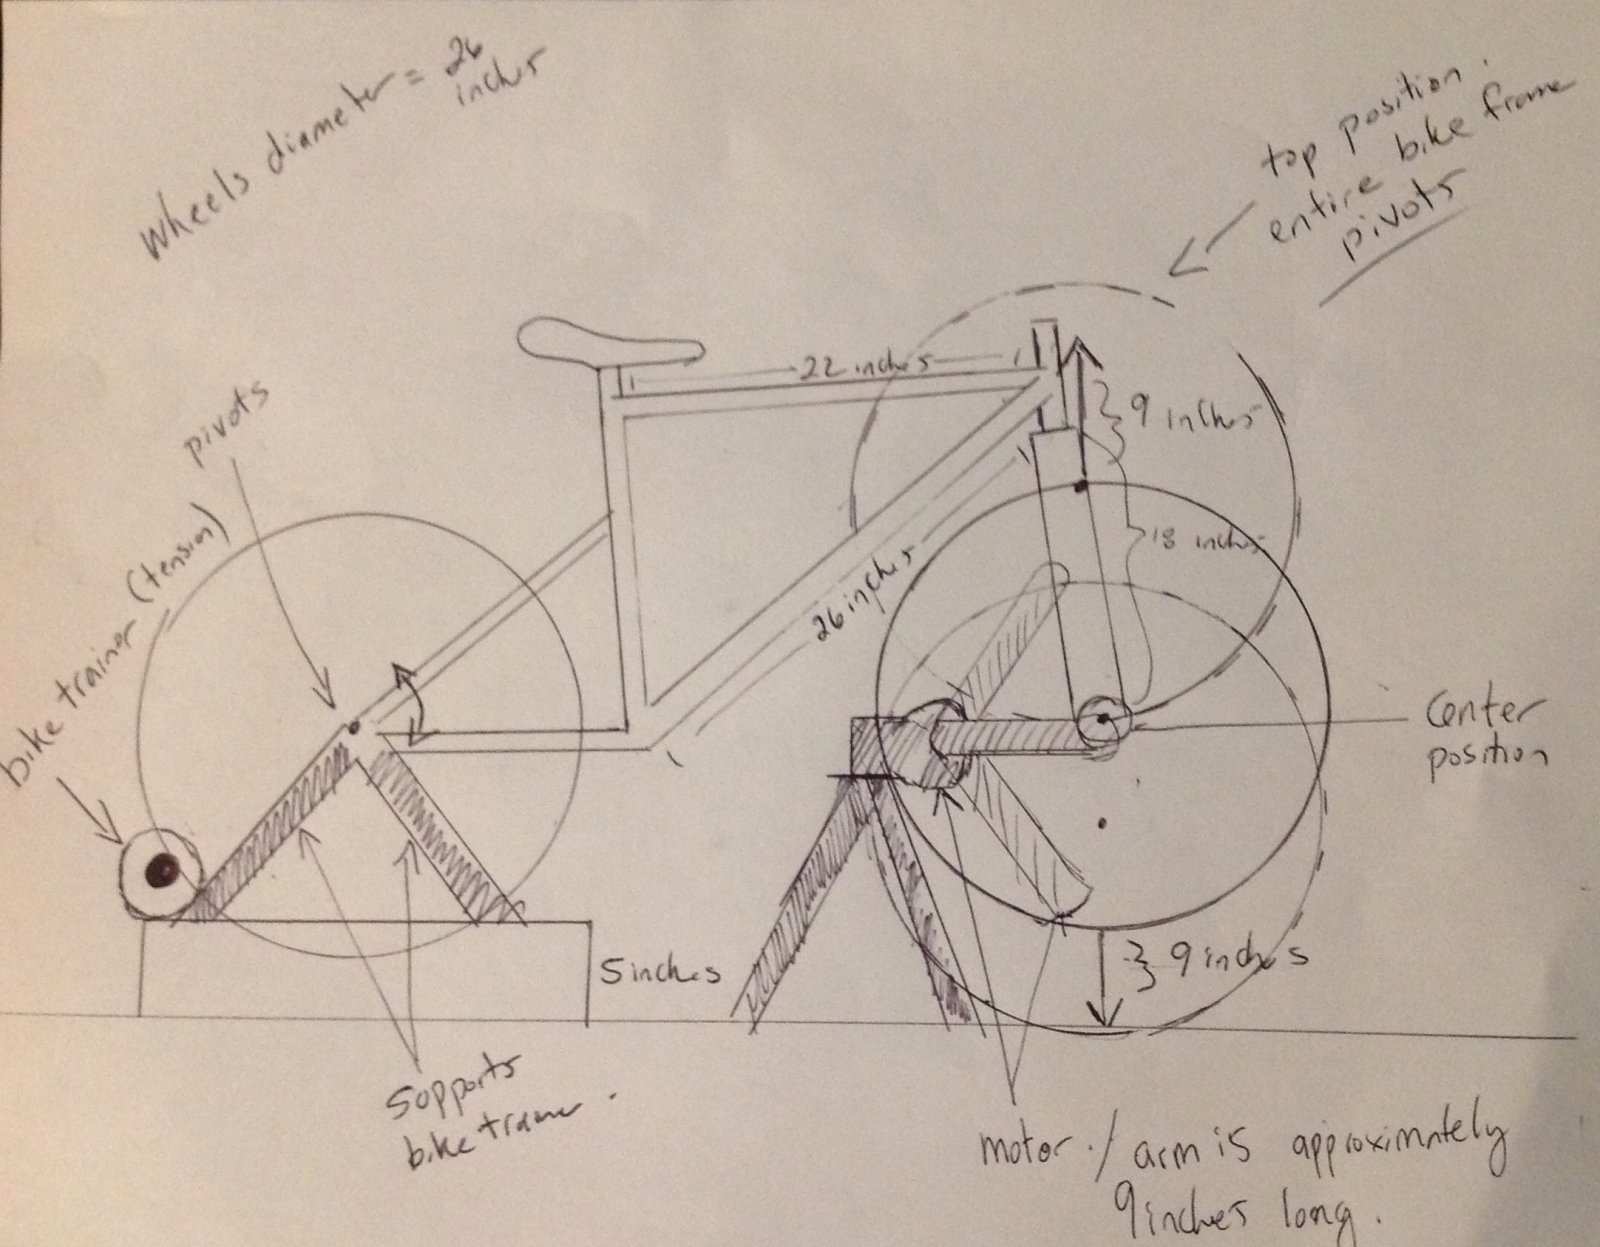 wheels diameter = 26
inches
top position.
entire bike frame
pivots
22 inches
9 inches
pivots
bike trainer (tension)
18 inches
26 inches
center
position
5 inches
9 inches
supports
bike trainer.
motor / arm is approximately
9 inches long.